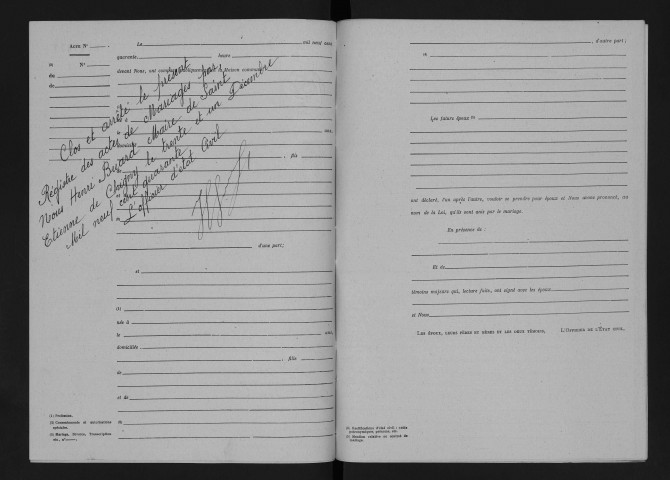 Acte N°
La mil neuf cent
quarante heure
M N°
du devant Nous, ont comparu publiquement en la Maison commune
de
Clos et arrêté le présent
Régistre des actes de Mariages par,
Nous Henri Buard Maire de Saint
Etienne de Chigny le trente et un Décembre
Mil neuf cent quarante
L'officier d'état Civil
fils
d'une part;
et
(1)
née à
le
domiciliée
, fille
de
et de
(1) Profession.
(2) Consentements et autorisations spéciales.
(3) Mariage, Divorce, Transcription etc.,
, d'autre part;
Les futurs époux
ont déclaré, l'un après l'autre, vouloir se prendre pour époux et Nous avons prononcé, au
nom de la Loi, qu'ils sont unis par le mariage.
En présence de :
Et de
témoins majeurs qui, lecture faite, ont signé avec les époux
et Nous
L'Officier de l'État civil,